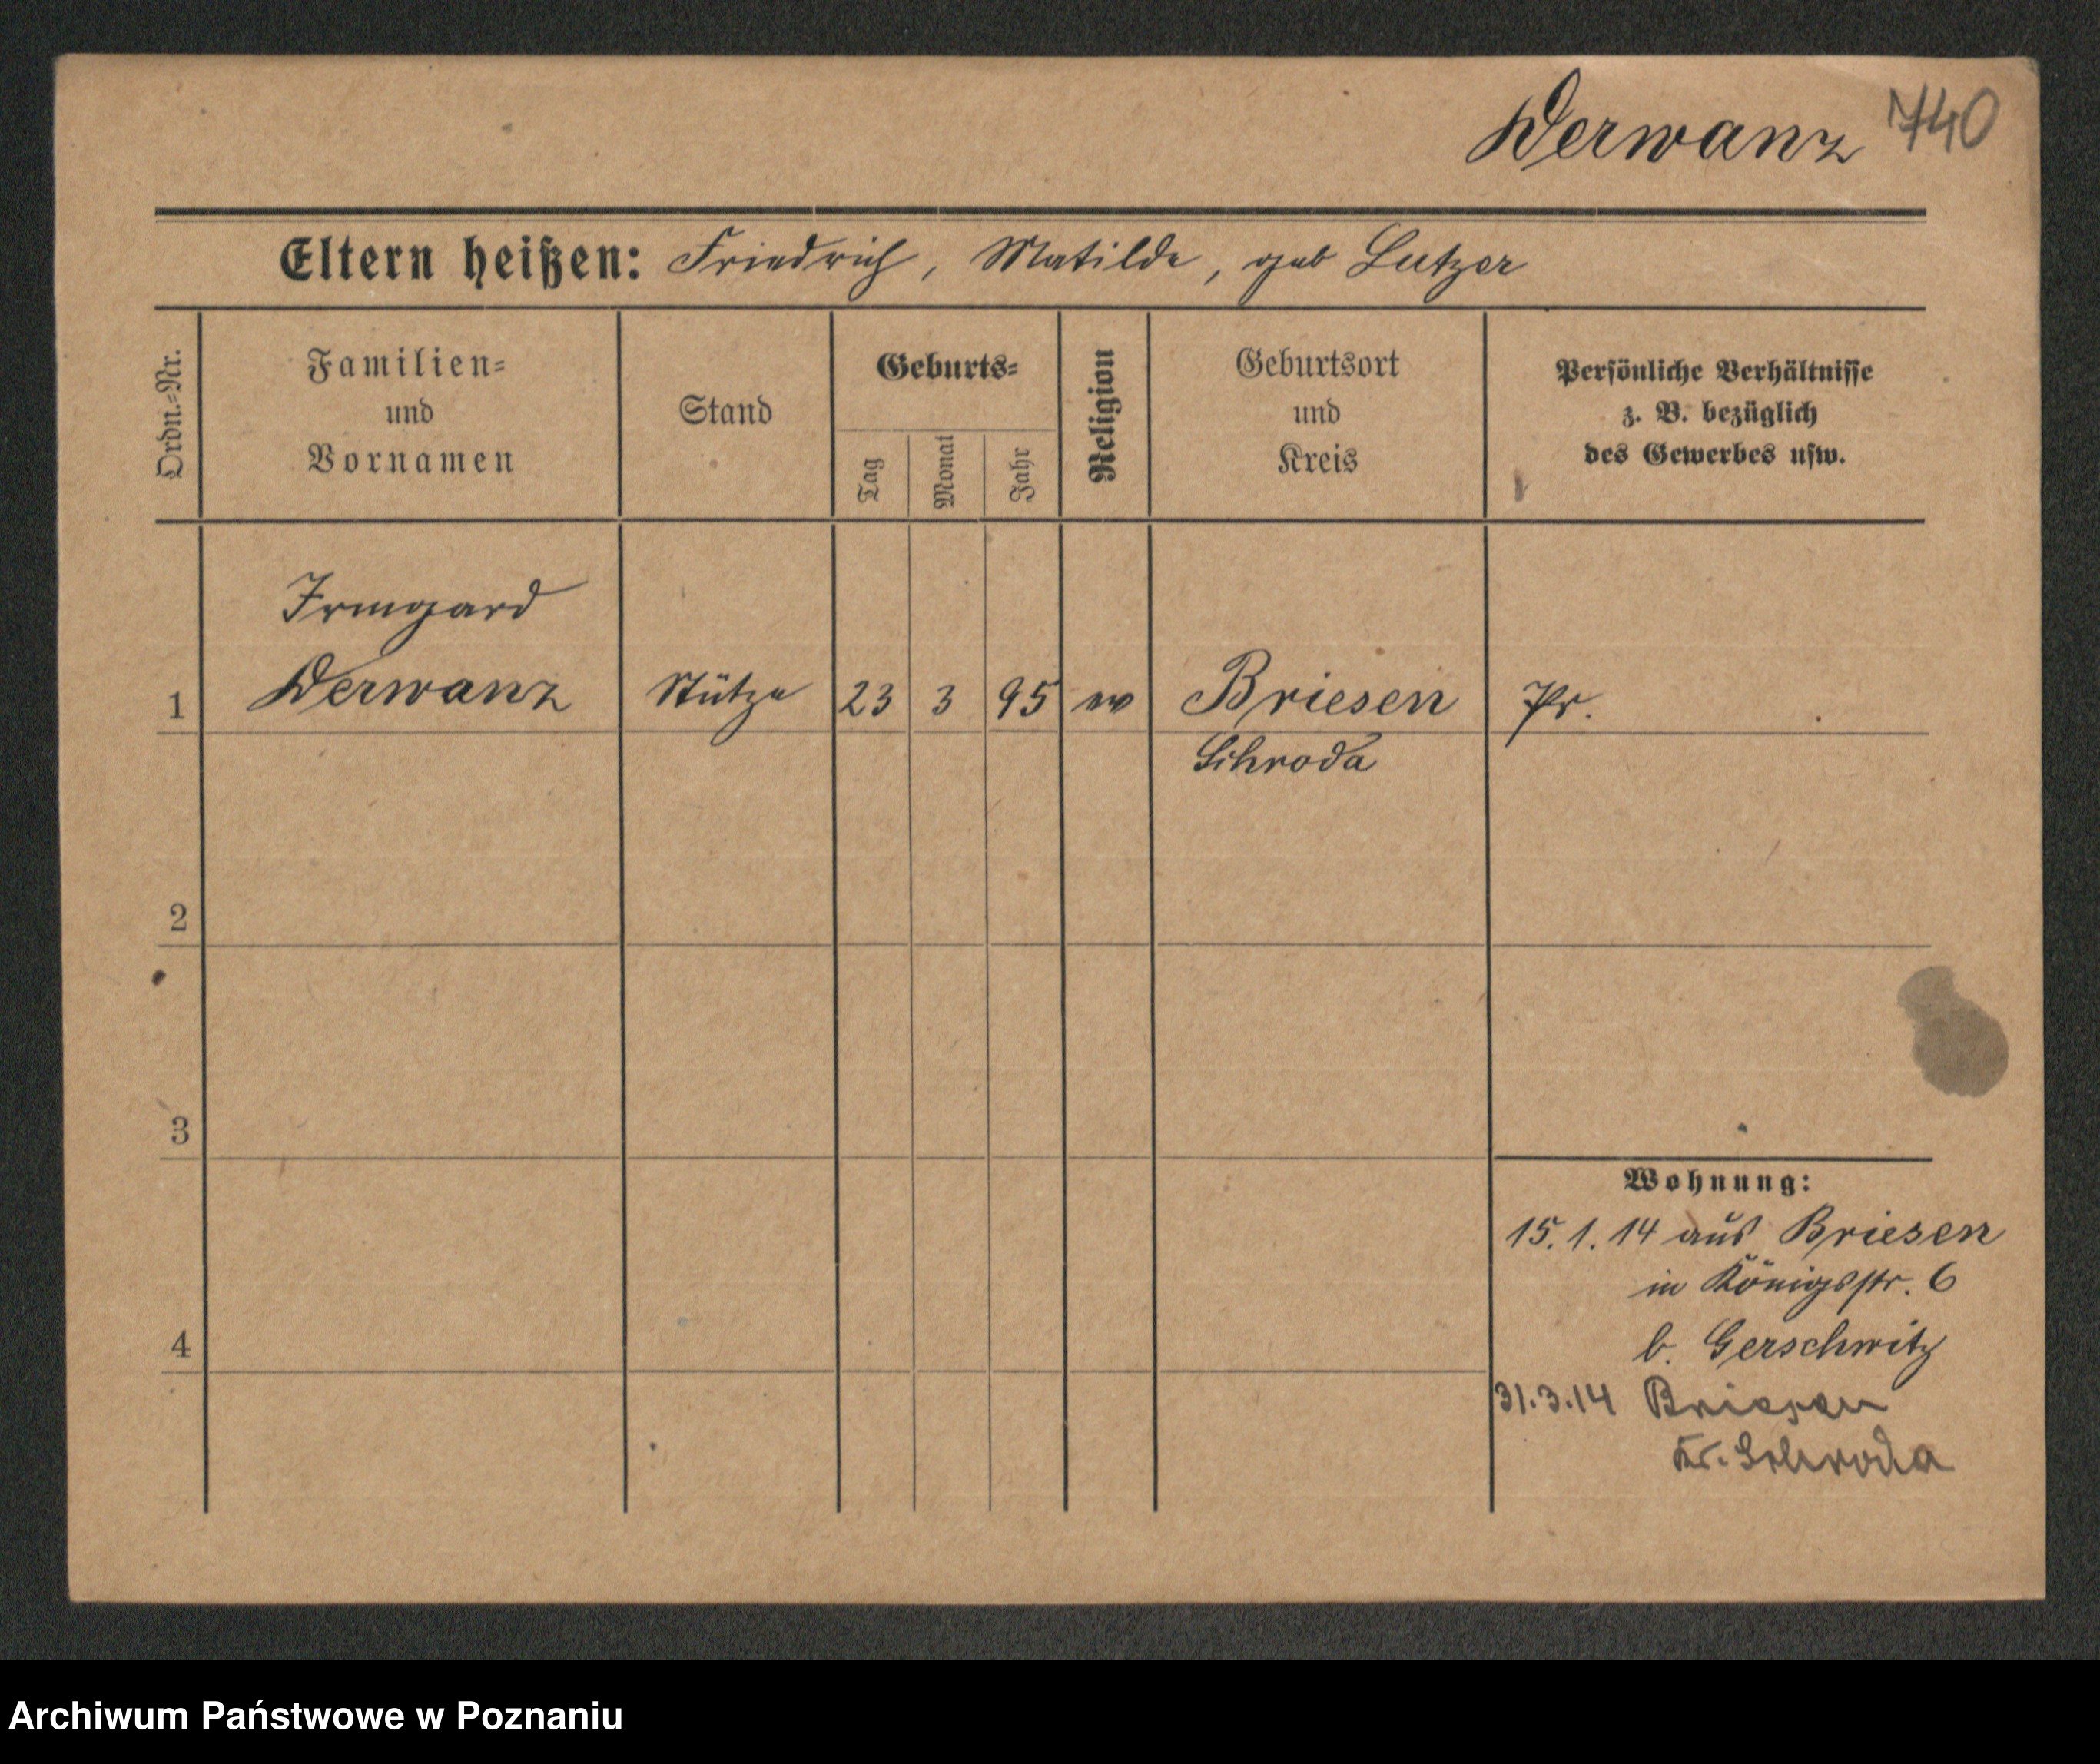 Derwanz 740
Eltern heißen: Friedrich, Matilde, geb Lutzer
Ordn.-Nr.
Familien-
und
Vornamen
Stand
Geburts-
Tag
Monat
Jahr
Religion
Geburtsort
und
Kreis
Persönliche Verhältnisse
z. B. bezüglich
des Gewerbes usw.
Irmgard
1 Derwanz Stütze 23 3 95 ev Briesen Pr.
Schroda
2
3
4
Wohnung:
15. 1. 14 aus Briesen
in Königsstr. 6
b. Gerschwitz
31.3.14 Briesen
Kr. Schroda
Archiwum Państwowe w Poznaniu